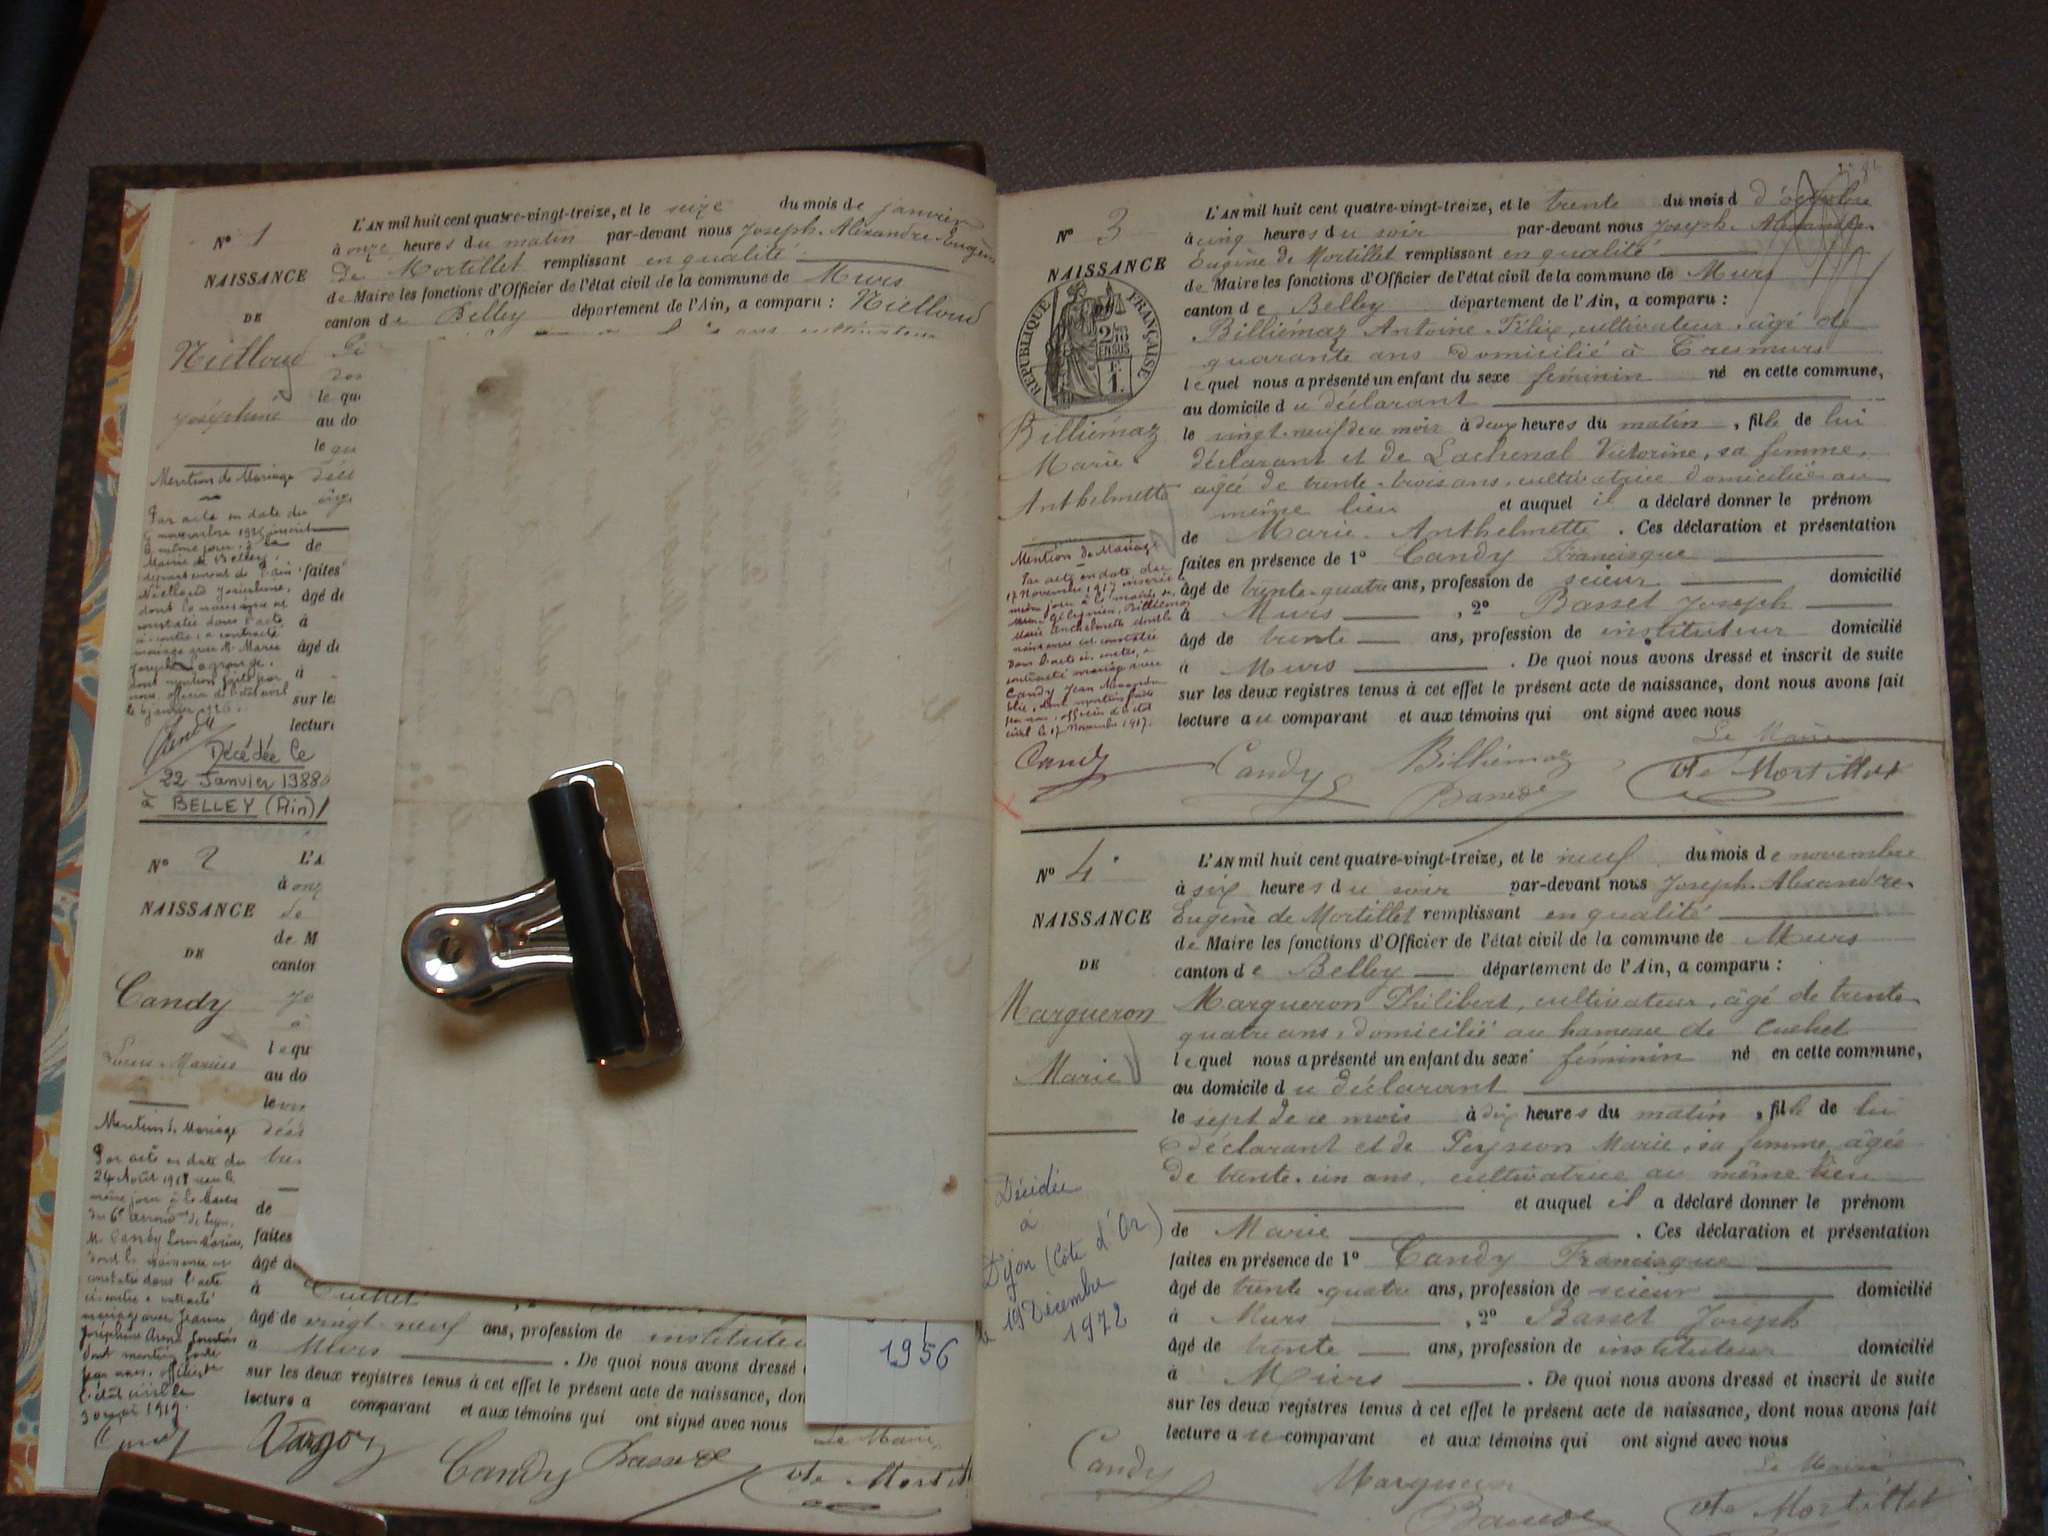 N° 1
NAISSANCE
DE
Nielloud
Joséphine
L'AN mil huit cent quatre-vingt-treize, et le seize du mois de janvier
à onze heures du matin par-devant nous Joseph-Alexandre-Eugène
de Mortillet remplissant en qualité
de Maire les fonctions d'Officier de l'état civil de la commune de Murs
canton de Belley département de l'Ain, a comparu : Nielloud
le qu
au do
le qu
de
faites
âgé de
à
âgé de
à
sur le
lectur
Mention de Mariage
Par acte en date du
novembre 1925 inscrit
le même jour à la
Mairie de Belley
département de l'Ain
Nielloud Joséphine,
dont la naissance est
constatée dans l'acte
ci-contre, a contracté
mariage avec Mr Marie
Joseph
dont mention faite par
nous, officier de l'état civil
le 6 janvier 1926.
Candy
Décédée le
22 Janvier 1988
à BELLEY (Ain)
N° 2
NAISSANCE
DE
Candy
Louis Marius
L'A
à onz
de
de M
canton
le qu
au do
de
faites
âgé de
à Cuchet
âgé de vingt-neuf ans, profession de instituteu
à Murs . De quoi nous avons dressé
sur les deux registres tenus à cet effet le présent acte de naissance, don
lecture a comparant et aux témoins qui ont signé avec nous
Le Maire
Candy Basset de Mortill
Mention de Mariage
Par acte en date du
24 Août 1918 
même jour à la Mairie
du 6e arrondt de Lyon,
M. Candy Louis Marius,
dont la naissance est
constatée dans l'acte
ci-contre a contracté
mariage avec Jeanne
Joséphine
dont mention faite
par nous, officier de
l'état civil le
1919.
Candy
1956
N° 3
NAISSANCE
RÉPUBLIQUE FRANÇAISE
2/10 EN SUS
1 F.
Billiémaz
Marie
Anthelmette
L'AN mil huit cent quatre-vingt-treize, et le trente du mois d'octobre
à cinq heures du soir par-devant nous Joseph-Alexandre
Eugène de Mortillet remplissant en qualité
de Maire les fonctions d'Officier de l'état civil de la commune de Murs
canton de Belley département de l'Ain, a comparu :
Billiémaz Antoine-Félix, cultivateur, âgé de
quarante ans domicilié à Tresmurs
lequel nous a présenté un enfant du sexe féminin né en cette commune,
au domicile du déclarant
le vingt-neuf de ce mois à deux heures du matin, fille de lui
déclarant et de Lachenal Victorine, sa femme,
âgée de trente-trois ans, cultivatrice domiciliée au
même lieu et auquel il a déclaré donner le prénom
de Marie-Anthelmette. Ces déclaration et présentation
faites en présence de 1° Candy Francisque
âgé de trente-quatre ans, profession de scieur domicilié
à Murs , 2° Basset Joseph
âgé de trente ans, profession de instituteur domicilié
à Murs . De quoi nous avons dressé et inscrit de suite
sur les deux registres tenus à cet effet le présent acte de naissance, dont nous avons fait
lecture au comparant et aux témoins qui ont signé avec nous
Le Maire
Candy Billiémaz de Mortillet
Basset
Mention de Mariage
Par acte en date du
17 Novembre 1917 inscrit le
même jour à la mairie de
Murs-Gélignieux, Billiémaz
Marie Anthelmette dont la
naissance est constatée
dans l'acte ci-contre, a
contracté mariage avec
Candy Jean Alexandre
dont mention faite
par nous, officier de l'état
civil le 17 Novembre 1917.
Candy
N° 4
NAISSANCE
DE
Margueron
Marie
L'AN mil huit cent quatre-vingt-treize, et le neuf du mois de novembre
à six heures du soir par-devant nous Joseph-Alexandre
Eugène de Mortillet remplissant en qualité
de Maire les fonctions d'Officier de l'état civil de la commune de Murs
canton de Belley département de l'Ain, a comparu :
Margueron Philibert, cultivateur, âgé de trente
quatre ans, domicilié au hameau de Cuchet
lequel nous a présenté un enfant du sexe féminin né en cette commune,
au domicile du déclarant
le sept de ce mois à dix heures du matin, fille de lui
déclarant et de Peysson Marie, sa femme, âgée
de trente-un ans, cultivatrice au même lieu
et auquel il a déclaré donner le prénom
de Marie . Ces déclaration et présentation
faites en présence de 1° Candy Francisque
âgé de trente-quatre ans, profession de scieur domicilié
à Murs , 2° Basset Joseph
âgé de trente ans, profession de instituteur domicilié
à Murs . De quoi nous avons dressé et inscrit de suite
sur les deux registres tenus à cet effet le présent acte de naissance, dont nous avons fait
lecture au comparant et aux témoins qui ont signé avec nous
Le Maire
Candy Margueron de Mortillet
Basset
Décédée
à
Dijon (Côte d'Or)
le 19 Décembre
1972